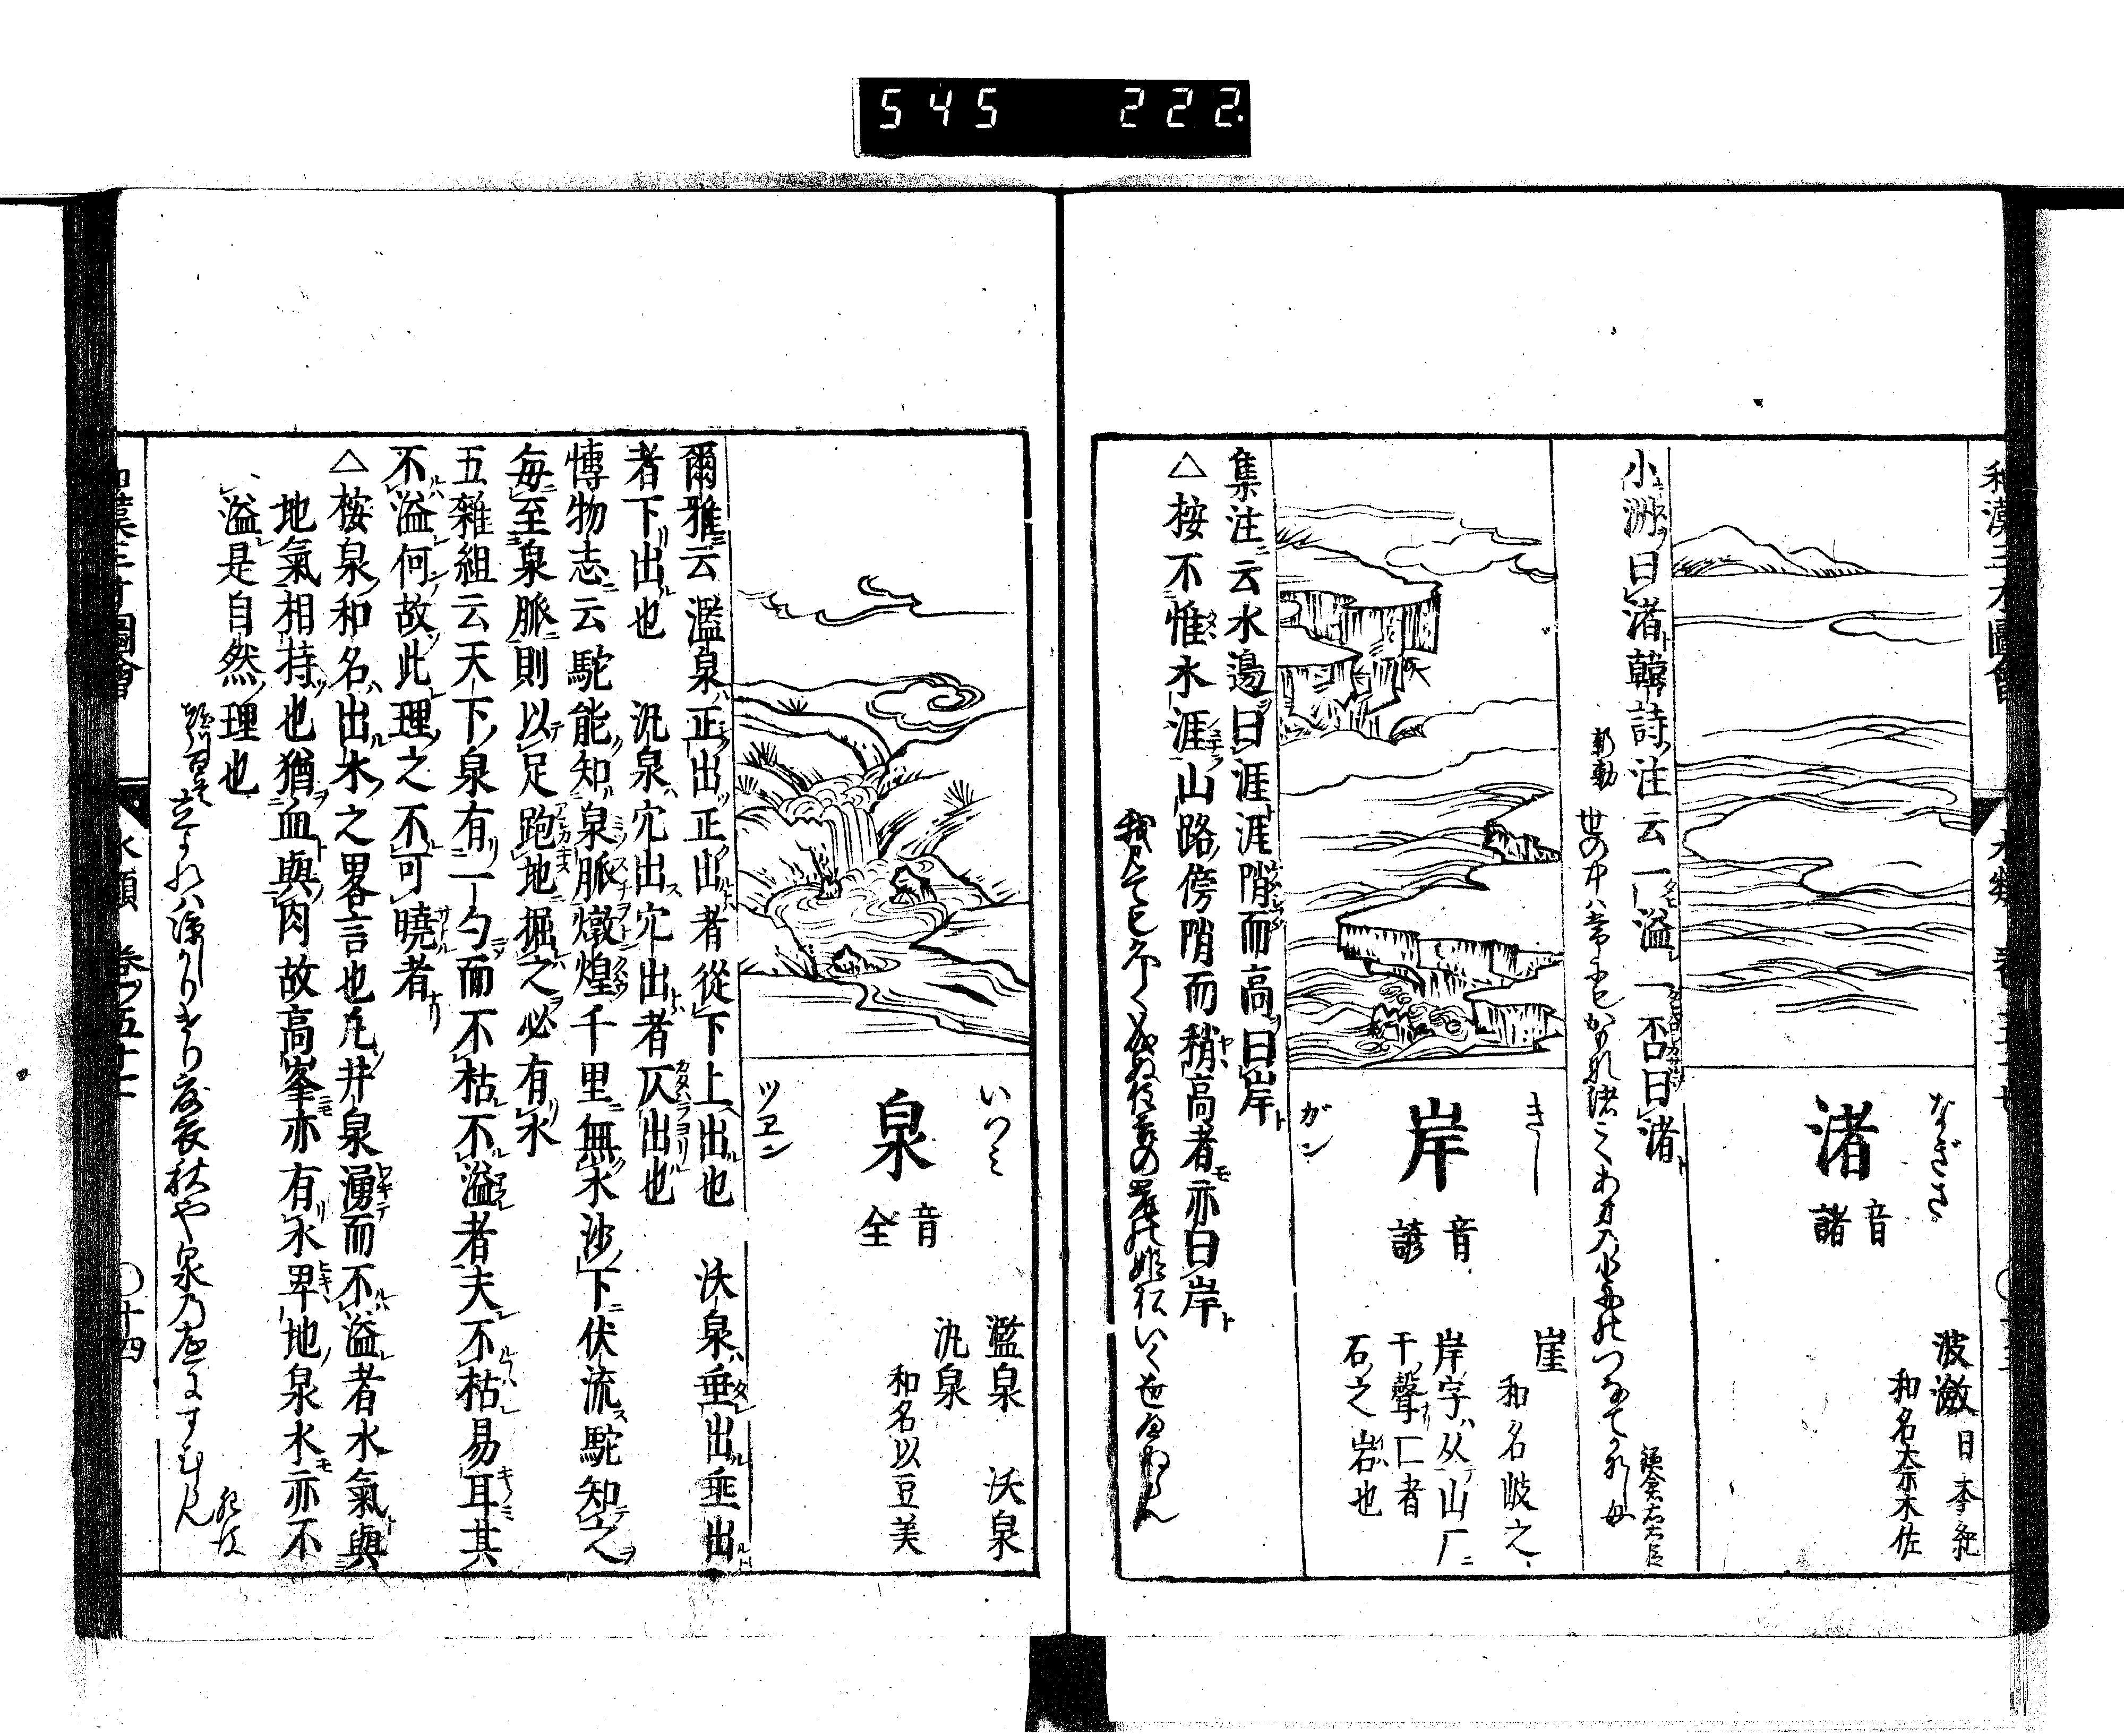 545 222.
和漢三才圖會
水類
なぎさ
渚
音諸
波瀲 日本紀
和名奈木佐
小洲曰渚韓詩注云一溢一否曰渚
新勅 世の中は常にもがもな渚こぐあまの小舟のつなでかなしも 鎌倉右大臣
きし
岸
音諺
ガン
崖
和名岐之
岸字从山厂
干聲厂者
石之岩也
集注云水邊曰涯涯陗而高曰岸
△桉不惟水涯山路傍陗而稍高者亦曰岸
我見ても久しく成ぬ住吉の岸の姫松いく世へぬらん
いつミ
泉
音全
ツヱン
濫泉 沃泉
氿泉
和名以豆美
爾雅云濫泉正出正出者從下上出也 沃泉垂出垂出
者下出也 氿泉穴出穴出者仄出也
博物志云駝能知泉脈燉煌千里無水沙下伏流駝知之
每至泉脈則以足跑地掘之必有水
五雜組云天下泉有一勺而不枯不溢者夫不枯易耳其
不溢何故此理之不可曉者
△桉泉和名出水之畧言也凡井泉湧而不溢者水氣與
地氣相持也猶血與肉故高峯亦有水卑地泉水亦不
溢是自然理也
和漢三才圖會
水類 卷ノ五十七
〇十四